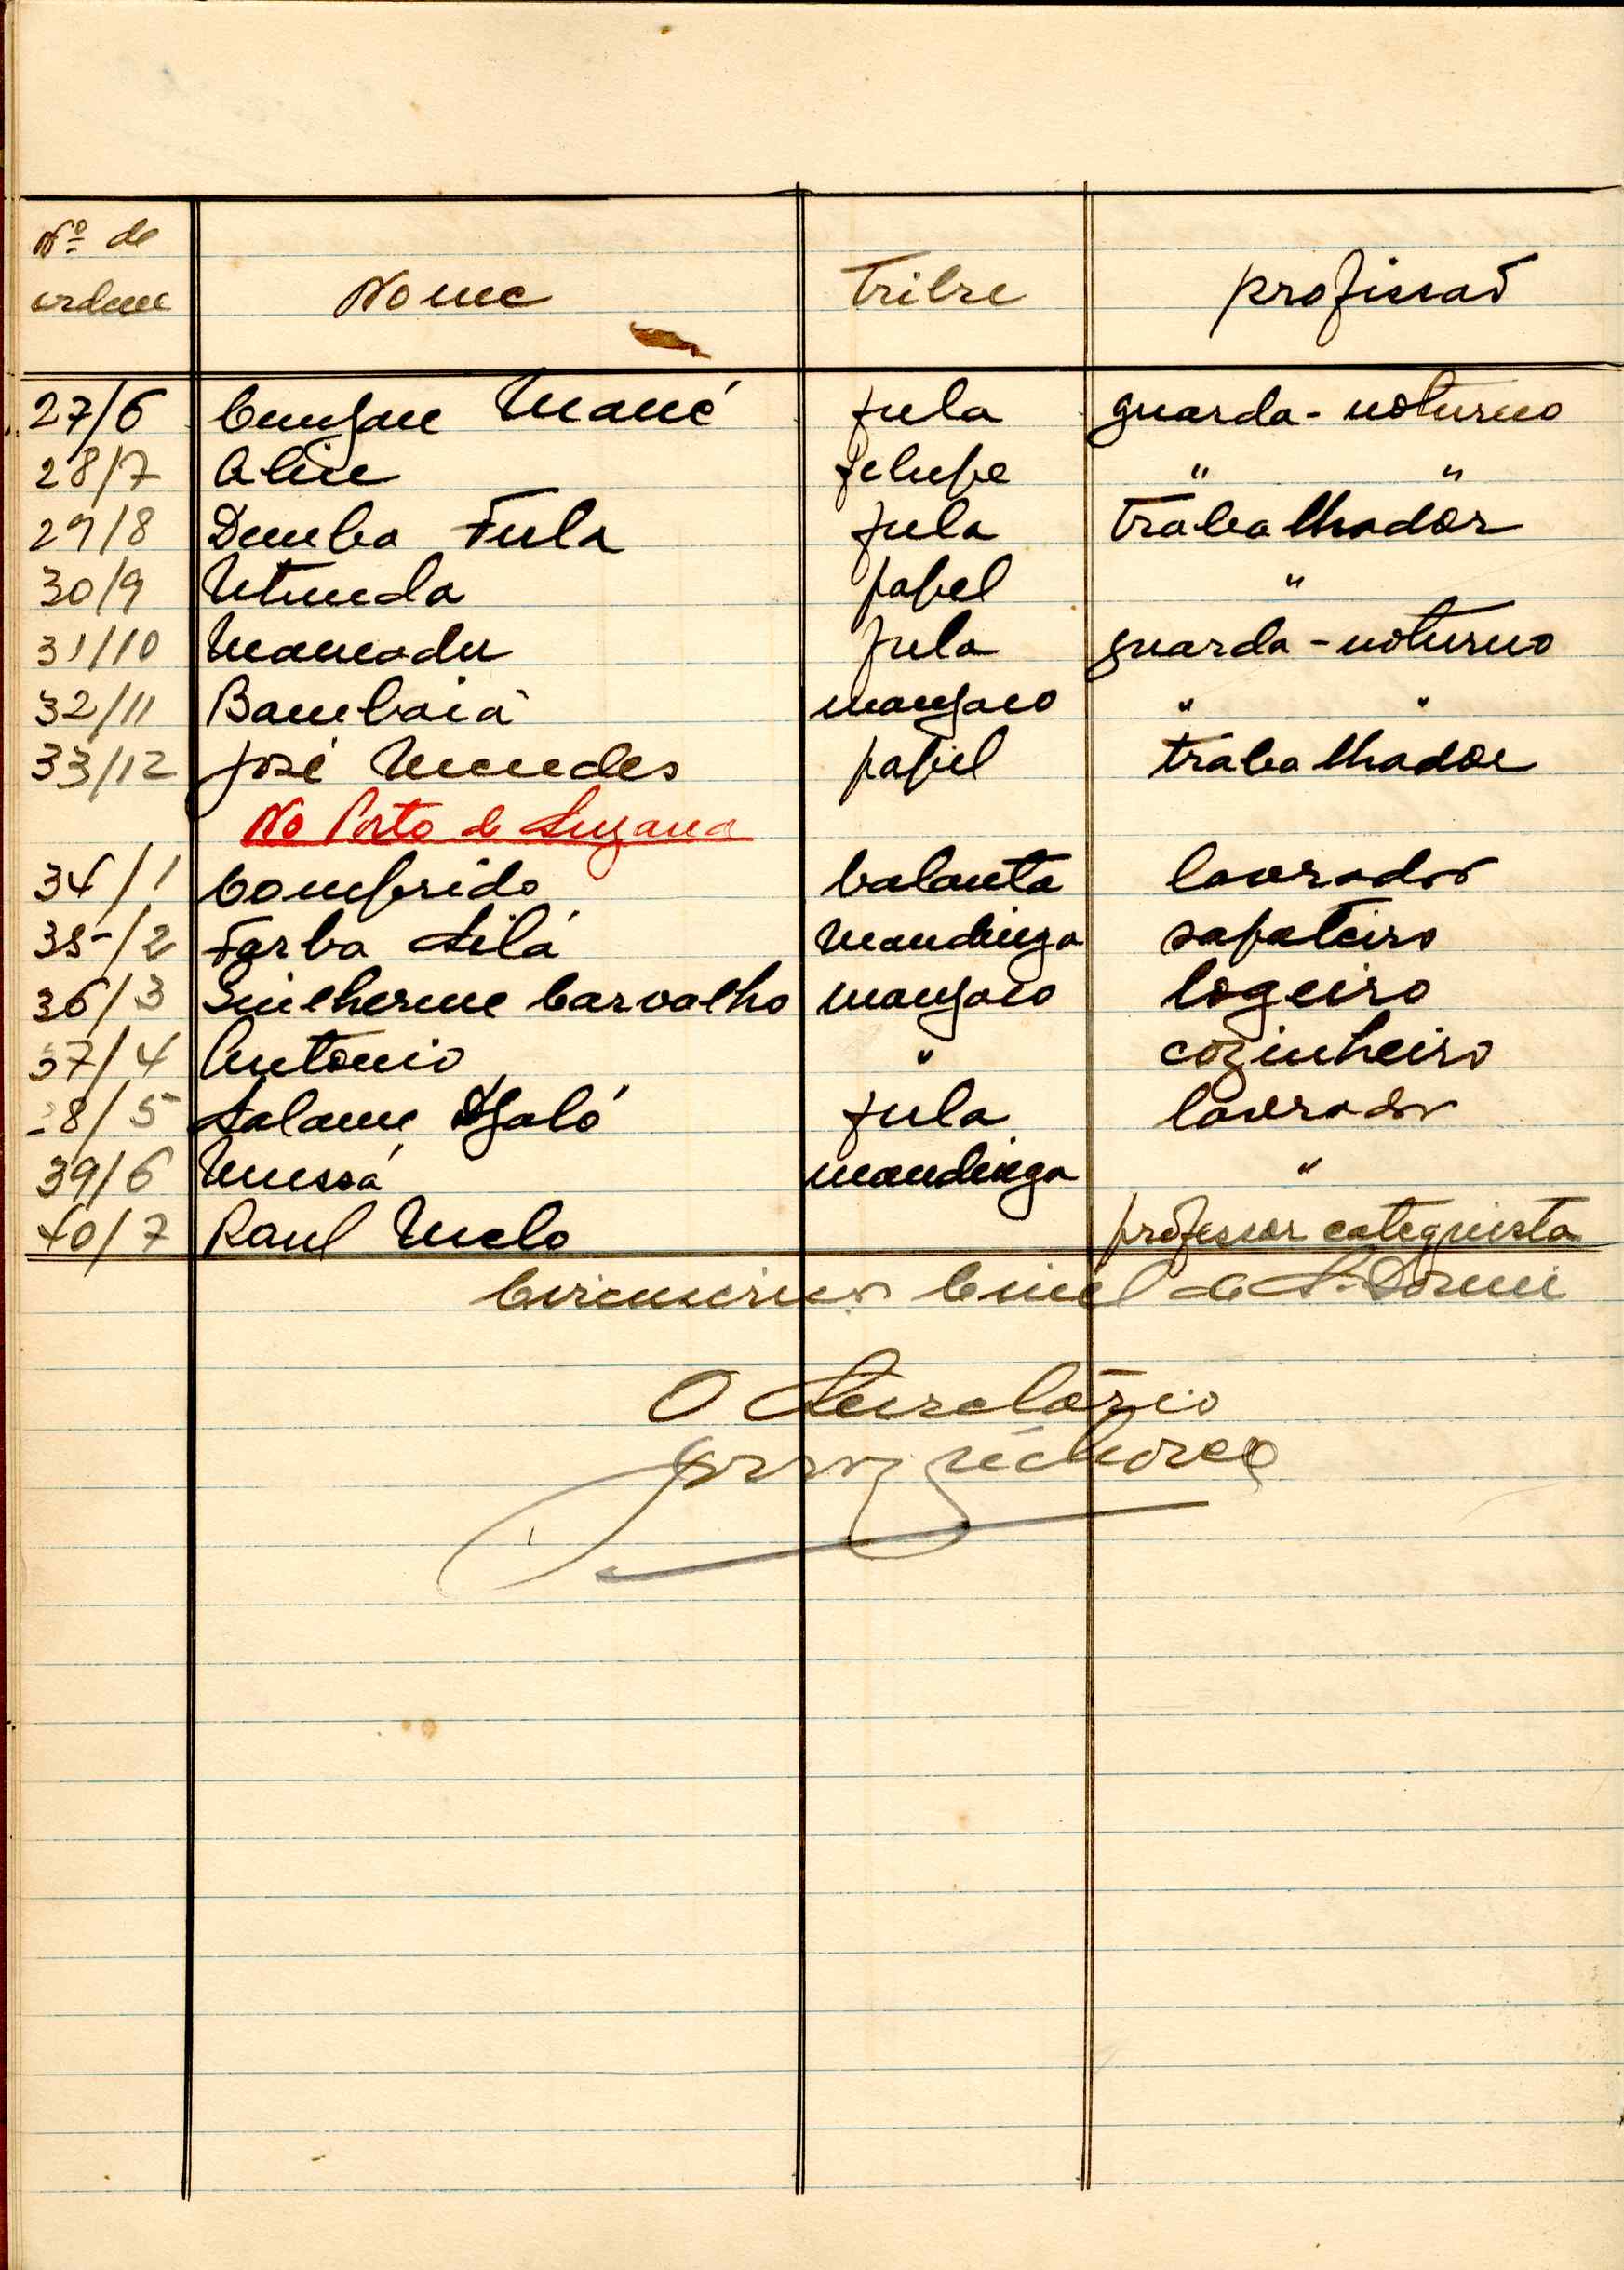 Nº de
ordem Nome Tribu profissaõ
27/6 Mané fula guarda-noturno
28/7 Aline felupe " "
29/8 Demba Fula fula trabalhador
30/9 papel "
31/10 Mamadu fula guarda-noturno
32/11 Bambaiá manjaco " "
33/12 José Mendes papel trabalhador
No Posto de Susana
34/1 Comprido balanta lavrador
35/2 Farba Silá Mandinga sapateiro
36/3 Guilherme Carvalho manjaco logeiro
37/4 Antonio " cozinheiro
38/5 Salame Djaló fula lavrador
39/6 Mussá mandinga "
40/7 Raul Melo professor catequista
Civil de S. Domi
O Secretário